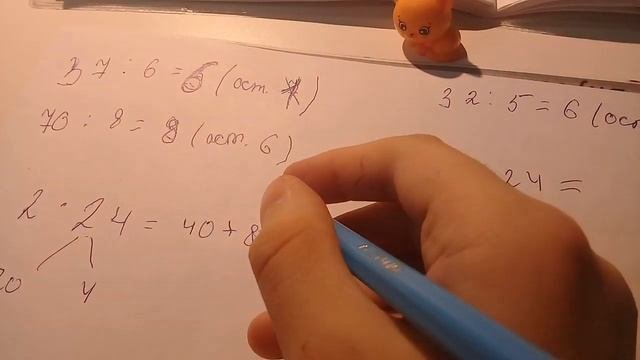 37 : 6 = 6 (ост. 1)
70 : 8 = 8 (ост. 6)
32 : 5 = 6 (ост
24 =
2 · 24 = 40 + 8
20 4